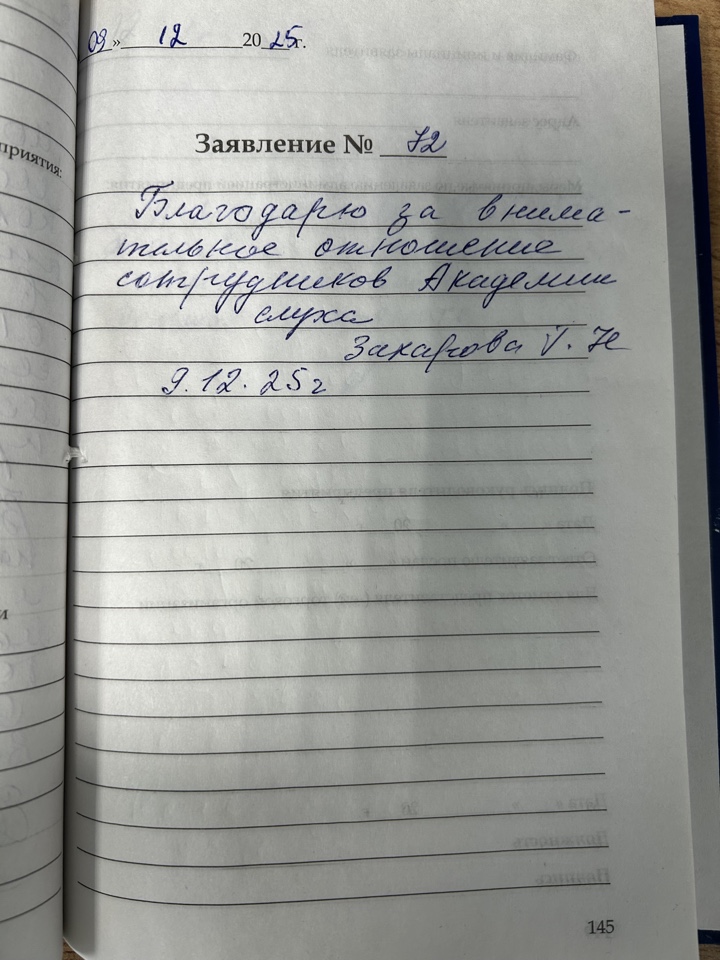 09 » 12 2025 г.
приятия:
Заявление № 72
Благодарю за внима-
тельное отношение
сотрудников Академии
слуха
Захарова Т. Н
9.12.25 г
и
145